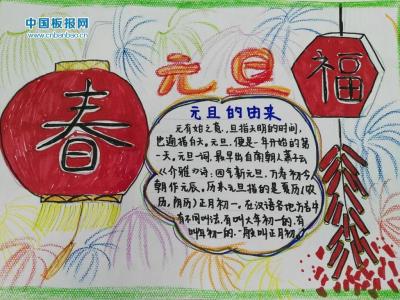 中国板报网
www.cnbanbao.cn
元旦
春
福
元旦的由来
元有始之意，旦指天明的时间，
也通指白天。元旦，便是一年开始的第
一天。元旦一词，最早出自南朝人萧子云
《介雅》诗：四气新元旦，万寿初今
朝作元辰，历来元旦指的是夏历（农
历，阴历）正月初一。在汉语各地方言中
有不同叫法，有叫大年初一的，有
叫初一的，一般叫正月初